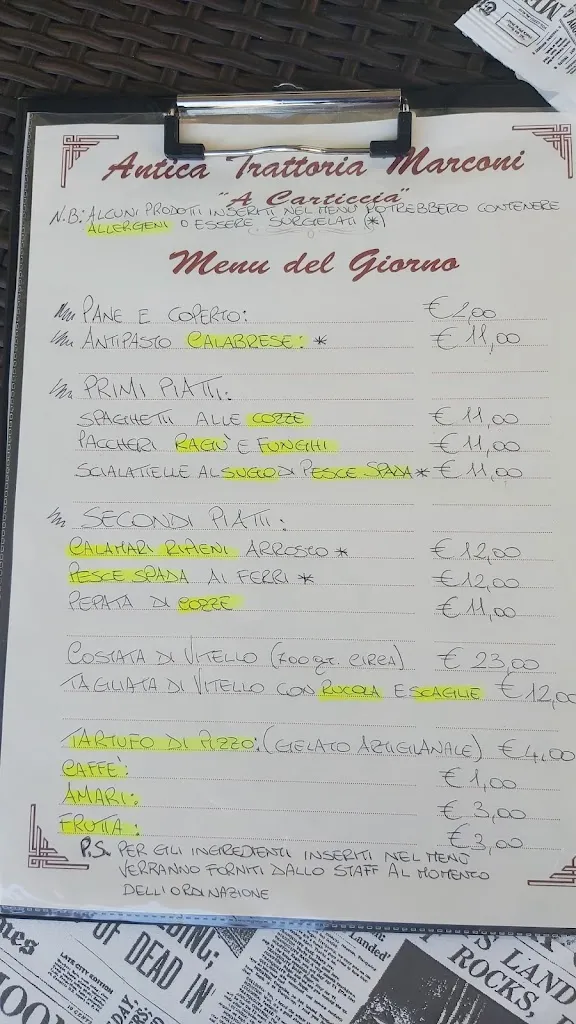 Antica Trattoria Marconi
"A Carticcia"
N.B: ALCUNI PRODOTTI INSERITI NEL MENÙ POTREBBERO CONTENERE
ALLERGENI O ESSERE SURGELATI (*)
Menu del Giorno
PANE E COPERTO: € 2,00
ANTIPASTO CALABRESE: * € 11,00
PRIMI PIATTI:
SPAGHETTI ALLE COZZE € 11,00
PACCHERI RAGÙ E FUNGHI € 11,00
SCIALATIELLE AL SUGO DI PESCE SPADA * € 11,00
SECONDI PIATTI:
CALAMARI RIPIENI ARROSTO * € 12,00
PESCE SPADA AI FERRI * € 12,00
PEPATA DI COZZE € 11,00
COSTATA DI VITELLO (700 gr. CIRCA) € 23,00
TAGLIATA DI VITELLO CON RUCOLA E SCAGLIE € 12,00
TARTUFO DI PIZZO: (GELATO ARTIGIANALE) € 4,00
CAFFÈ: € 1,00
AMARI: € 3,00
FRUTTA: € 3,00
P.S. PER GLI INGREDIENTI INSERITI NEL MENÙ
VERRANNO FORNITI DALLO STAFF AL MOMENTO
DELL'ORDINAZIONE
LATE CITY EDITION
OF DEAD IN
Landed"
S LAND
ROCKS,